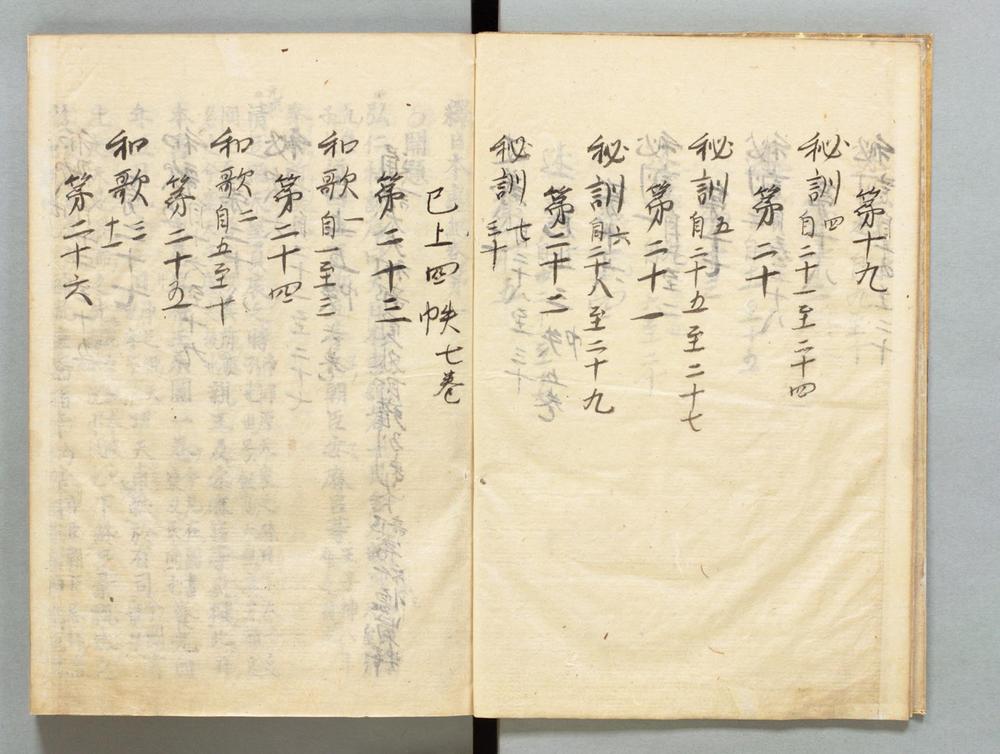 第十九
秘訓四 自二十一至二十四
第二十
秘訓五 自二十五至二十七
第二十一
秘訓六 自二十八至二十九
第二十二
秘訓七 三十
已上四帙七巻
第二十三
和歌一 自一至三
第二十四
和歌二 自五至十
第二十五
和歌三 十一
第二十六